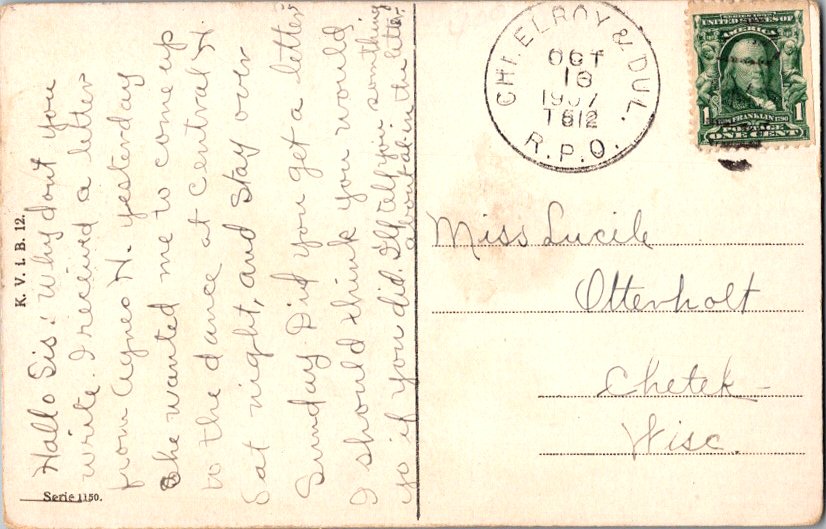 Hallo Sis: Why dont you
write. I received a letter
from Agnes H. yesterday
She wanted me to come up
to the dance at Central H.
Sat night, and stay over
Sunday Did you get a letter?
I should think you would,
if you did. I'll tell you something
about in the letter.
K. V. i. B. 12.
Serie 1150.
CHI. ELROY & DUL.
OCT
18
1907
R.P.O.
SERIES 1902
UNITED STATES OF
AMERICA
1 FRANKLIN 1790 1
POSTAGE
ONE CENT
Miss Lucile
Otterholt
Chetek
Wisc.